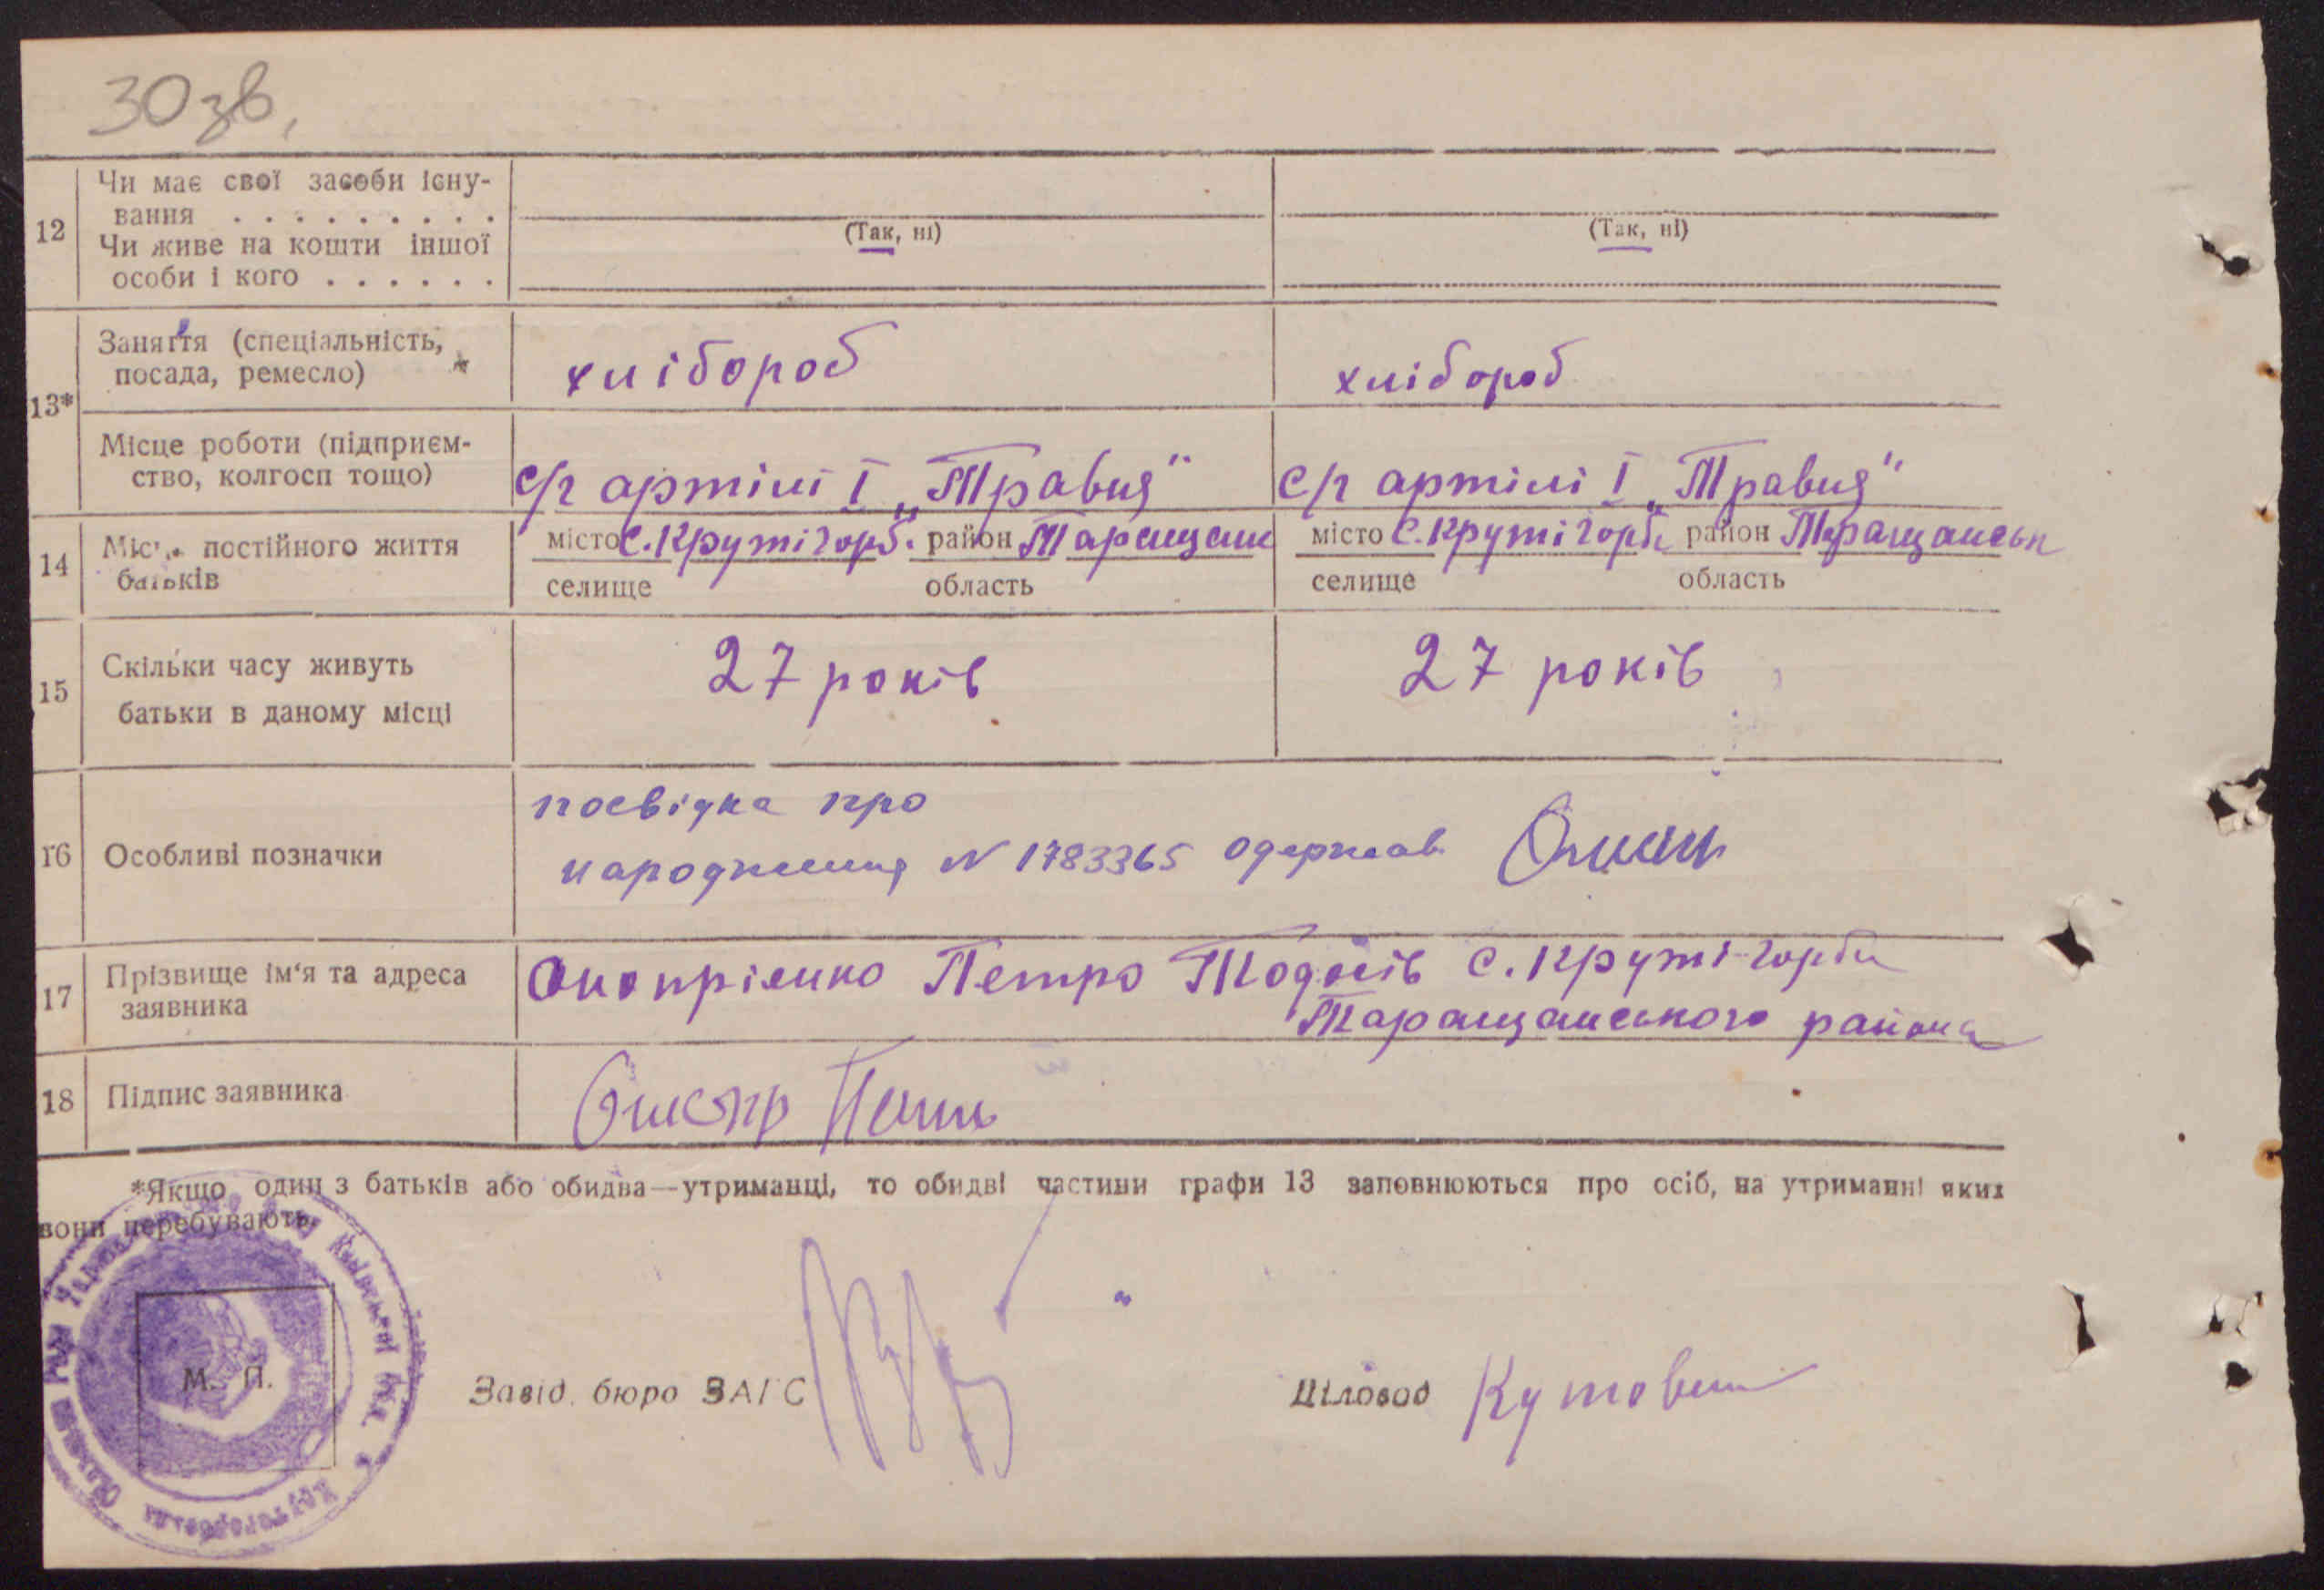 30 зв,
12 Чи має свої засоби існу-
вання . . . . . . . . .
Чи живе на кошти іншої
особи і кого . . . . . .
(Так, ні) (Так, ні)
13* Заняття (спеціальність,
посада, ремесло)
хлібороб хлібороб
Місце роботи (підприєм-
ство, колгосп тощо)
с/г артілі І „Травня" с/г артілі І „Травня"
14 Місце постійного життя
батьків
місто с. Круті горб. район Таращан місто с. Круті горби район Таращанськ
селище область селище область
15 Скільки часу живуть
батьки в даному місці
27 років 27 років
16 Особливі позначки
посвідка про
народження N 1783365 одержав
17 Прізвище ім'я та адреса
заявника
Онопрієнко Петро Тодосів с. Круті-горби
Таращанського района
18 Підпис заявника
*Якщо один з батьків або обидва—утриманці, то обидві частини графи 13 заповнюються про осіб, на утриманні яких
вони перебувають.
М. П.
Завід. бюро ЗАГС
Діловод Кутовий